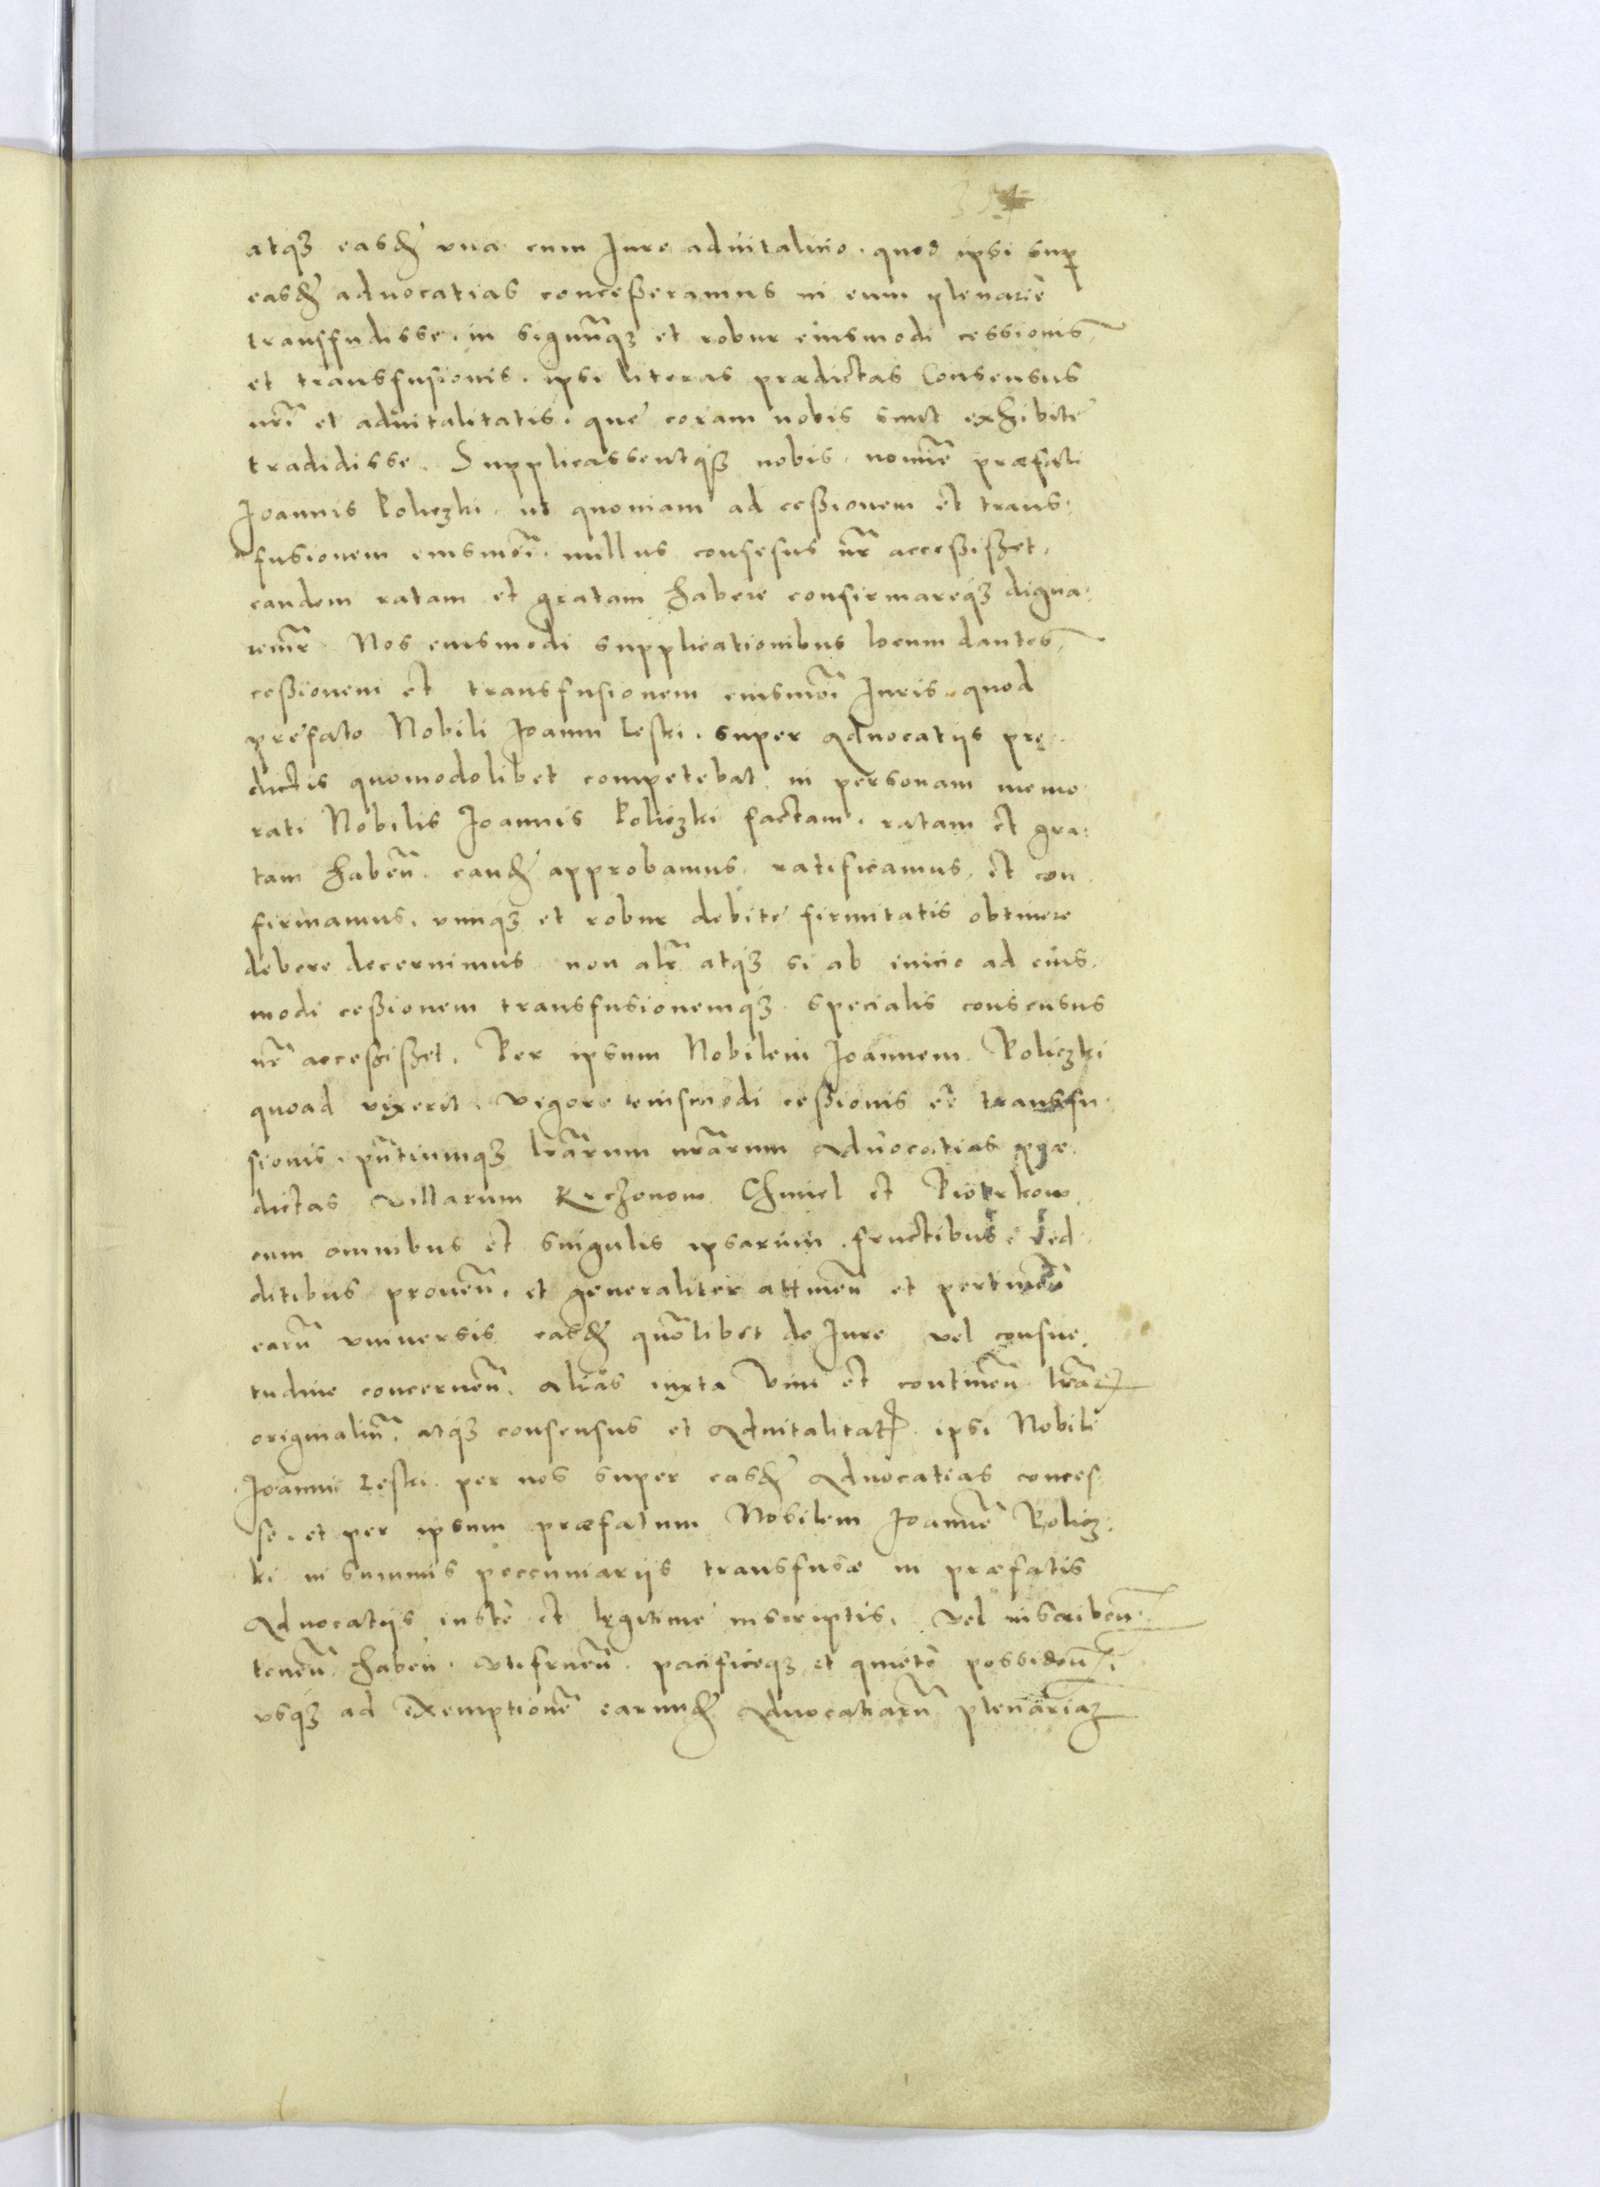 atqз easdē vna cum Jure aduitalitio. quod ipsi sup
easdē aduocatias conceßeramus in eum plenarie
transfudisse. in signūqз et robur eiusmodi cessionis
et transfusionis. ipsi literas prædictas Consensus
nrī et aduitalitatis. que coram nobis sunt exhibite
tradidisse. Supplicassentqз nobis. nomīe præfati
Joannis Koliczki. ut quoniam ad ceßionem et trans:
fusionem eiusmōi. nullus consesus nr̄ acceßißet.
eandem ratam et gratam habere confirmareqз digna:
remur̄ Nos eiusmodi supplicationibus locum dantes
ceßionem et transfusionem eiusmōi Juris. quod
prefato Nobili Joanni Leski. super Aduocatijs prę:
dictis quomodolibet competebat in personam memo
rati Nobilis Joannis Koliczki factam. ratam et gra:
tam habeñ. eandē approbamus. ratificamus. et con
firmamus. vimqз et robur debite firmitatis obtinere
debere decernimus non alr̄ atqз si ab inicio ad eius.
modi ceßionem transfusionemqз specialis consensus
nr̄ acceßißet. Per ipsum Nobilem Joannem Koliczki
quoad vixerit. vigore eiusmodi ceßionis et transfu:
sionis. pn̄tiumqз lrārum nrārum Aduocatias præ.
dictas villarum Krczonow Chmiel et Piotrkow
cum omnibus et singulis ipsarum. fructibus. red
ditibus proueñ. et generaliter attineñ et pertineñ
earū vniuersis easdē quōlibet de Jure vel consue.
tudine concerneñ. alias iuxta vim et contineñ lrārꝝ
originaliū. atqз consensus et Aduitalitatꝭ ipsi Nobili
Joanni Leski per nos super easdē Aduocatias conces
se. et per ipsum præfatum Nobilem Joannē Kolicz:
ki in summis peccuniarijs transfusæ in præfatis
Aduocatijs iuste et legitime inscriptis. vel inscribeñ
teneñ habeñ. Vtifrueñ. pacificeqз et quiete possideñ.
vsqз ad exemptionē earundē Aduocatiarū plenariaз